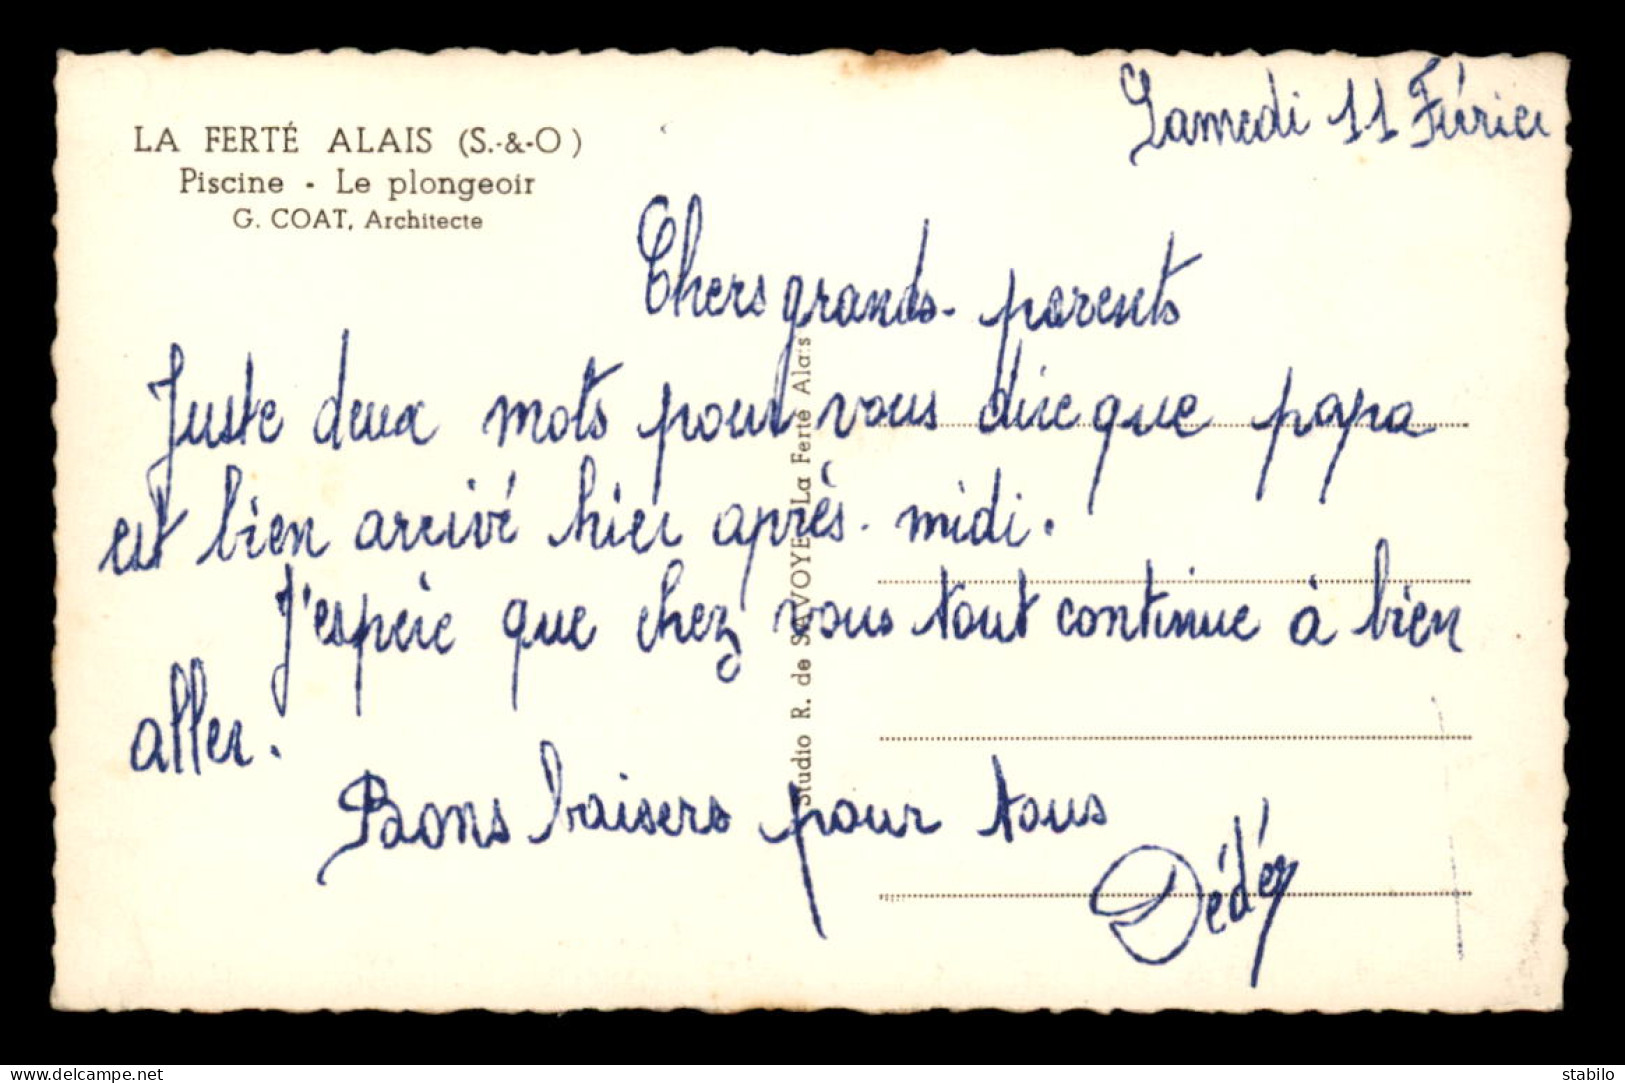 LA FERTÉ ALAIS (S.-&-O)
Piscine - Le plongeoir
G. COAT, Architecte
Samedi 11 Février
Chers grands-parents
Juste deux mots pour vous dire que papa
est bien arrivé hier après-midi.
J'espère que chez vous tout continue à bien
aller.
Bons baisers pour tous
Dédé
Studio R. de SAVOYE La Ferté Alais
www.delcampe.net
stabilo